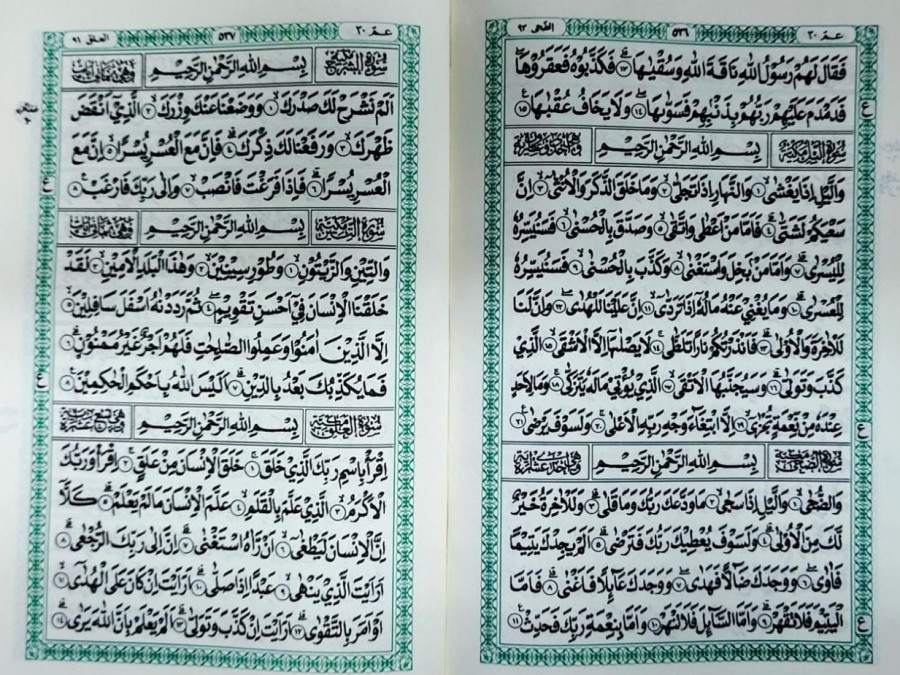 عمّ ٣٠
٥٣٦
الضّحى ٩٣
فَقَالَ لَهُمْ رَسُوْلُ اللّٰهِ نَاقَةَ اللّٰهِ وَسُقْيٰهَا ١٣ فَكَذَّبُوْهُ فَعَقَرُوْهَا
فَدَمْدَمَ عَلَيْهِمْ رَبُّهُمْ بِذَنْۢبِهِمْ فَسَوّٰىهَا ١٤ وَلَا يَخَافُ عُقْبٰهَا ١٥
سُوْرَةُ الَّيْلِ مَكِّيَّةٌ بِسْمِ اللّٰهِ الرَّحْمٰنِ الرَّحِيْمِ
وَالَّيْلِ اِذَا يَغْشٰى ١ وَالنَّهَارِ اِذَا تَجَلّٰى ٢ وَمَا خَلَقَ الذَّكَرَ وَالْاُنْثٰى ٣ اِنَّ
سَعْيَكُمْ لَشَتّٰى ٤ فَاَمَّا مَنْ اَعْطٰى وَاتَّقٰى ٥ وَصَدَّقَ بِالْحُسْنٰى ٦ فَسَنُيَسِّرُهٗ
لِلْيُسْرٰى ٧ وَاَمَّا مَنْۢ بَخِلَ وَاسْتَغْنٰى ٨ وَكَذَّبَ بِالْحُسْنٰى ٩ فَسَنُيَسِّرُهٗ
لِلْعُسْرٰى ١٠ وَمَا يُغْنِيْ عَنْهُ مَالُهٗٓ اِذَا تَرَدّٰى ١١ اِنَّ عَلَيْنَا لَلْهُدٰى ١٢ وَاِنَّ لَنَا
لَلْاٰخِرَةَ وَالْاُوْلٰى ١٣ فَاَنْذَرْتُكُمْ نَارًا تَلَظّٰى ١٤ لَا يَصْلٰىهَآ اِلَّا الْاَشْقَى ١٥ الَّذِيْ
كَذَّبَ وَتَوَلّٰى ١٦ وَسَيُجَنَّبُهَا الْاَتْقَى ١٧ الَّذِيْ يُؤْتِيْ مَالَهٗ يَتَزَكّٰى ١٨ وَمَا لِاَحَدٍ
عِنْدَهٗ مِنْ نِّعْمَةٍ تُجْزٰٓى ١٩ اِلَّا ابْتِغَآءَ وَجْهِ رَبِّهِ الْاَعْلٰى ٢٠ وَلَسَوْفَ يَرْضٰى ٢١
سُوْرَةُ الضُّحٰى مَكِّيَّةٌ بِسْمِ اللّٰهِ الرَّحْمٰنِ الرَّحِيْمِ
وَالضُّحٰى ١ وَالَّيْلِ اِذَا سَجٰى ٢ مَا وَدَّعَكَ رَبُّكَ وَمَا قَلٰى ٣ وَلَلْاٰخِرَةُ خَيْرٌ
لَّكَ مِنَ الْاُوْلٰى ٤ وَلَسَوْفَ يُعْطِيْكَ رَبُّكَ فَتَرْضٰى ٥ اَلَمْ يَجِدْكَ يَتِيْمًا
فَاٰوٰى ٦ وَوَجَدَكَ ضَآلًّا فَهَدٰى ٧ وَوَجَدَكَ عَآئِلًا فَاَغْنٰى ٨ فَاَمَّا
الْيَتِيْمَ فَلَا تَقْهَرْ ٩ وَاَمَّا السَّآئِلَ فَلَا تَنْهَرْ ١٠ وَاَمَّا بِنِعْمَةِ رَبِّكَ فَحَدِّثْ ١١
عمّ ٣٠
٥٣٧
العلق ٩٦
بِسْمِ اللّٰهِ الرَّحْمٰنِ الرَّحِيْمِ
اَلَمْ نَشْرَحْ لَكَ صَدْرَكَ ١ وَوَضَعْنَا عَنْكَ وِزْرَكَ ٢ الَّذِيْٓ اَنْقَضَ
ظَهْرَكَ ٣ وَرَفَعْنَا لَكَ ذِكْرَكَ ٤ فَاِنَّ مَعَ الْعُسْرِ يُسْرًا ٥ اِنَّ مَعَ
الْعُسْرِ يُسْرًا ٦ فَاِذَا فَرَغْتَ فَانْصَبْ ٧ وَاِلٰى رَبِّكَ فَارْغَبْ ٨
سُوْرَةُ التِّيْنِ مَكِّيَّةٌ بِسْمِ اللّٰهِ الرَّحْمٰنِ الرَّحِيْمِ
وَالتِّيْنِ وَالزَّيْتُوْنِ ١ وَطُوْرِ سِيْنِيْنَ ٢ وَهٰذَا الْبَلَدِ الْاَمِيْنِ ٣ لَقَدْ
خَلَقْنَا الْاِنْسَانَ فِيْٓ اَحْسَنِ تَقْوِيْمٍ ٤ ثُمَّ رَدَدْنٰهُ اَسْفَلَ سَافِلِيْنَ ٥
اِلَّا الَّذِيْنَ اٰمَنُوْا وَعَمِلُوا الصّٰلِحٰتِ فَلَهُمْ اَجْرٌ غَيْرُ مَمْنُوْنٍ ٦
فَمَا يُكَذِّبُكَ بَعْدُ بِالدِّيْنِ ٧ اَلَيْسَ اللّٰهُ بِاَحْكَمِ الْحٰكِمِيْنَ ٨
سُوْرَةُ الْعَلَقِ مَكِّيَّةٌ بِسْمِ اللّٰهِ الرَّحْمٰنِ الرَّحِيْمِ
اِقْرَاْ بِاسْمِ رَبِّكَ الَّذِيْ خَلَقَ ١ خَلَقَ الْاِنْسَانَ مِنْ عَلَقٍ ٢ اِقْرَاْ وَرَبُّكَ
الْاَكْرَمُ ٣ الَّذِيْ عَلَّمَ بِالْقَلَمِ ٤ عَلَّمَ الْاِنْسَانَ مَا لَمْ يَعْلَمْ ٥ كَلَّآ
اِنَّ الْاِنْسَانَ لَيَطْغٰٓى ٦ اَنْ رَّاٰهُ اسْتَغْنٰى ٧ اِنَّ اِلٰى رَبِّكَ الرُّجْعٰى ٨
اَرَءَيْتَ الَّذِيْ يَنْهٰى ٩ عَبْدًا اِذَا صَلّٰى ١٠ اَرَءَيْتَ اِنْ كَانَ عَلَى الْهُدٰٓى ١١
اَوْ اَمَرَ بِالتَّقْوٰى ١٢ اَرَءَيْتَ اِنْ كَذَّبَ وَتَوَلّٰى ١٣ اَلَمْ يَعْلَمْ بِاَنَّ اللّٰهَ يَرٰى ١٤